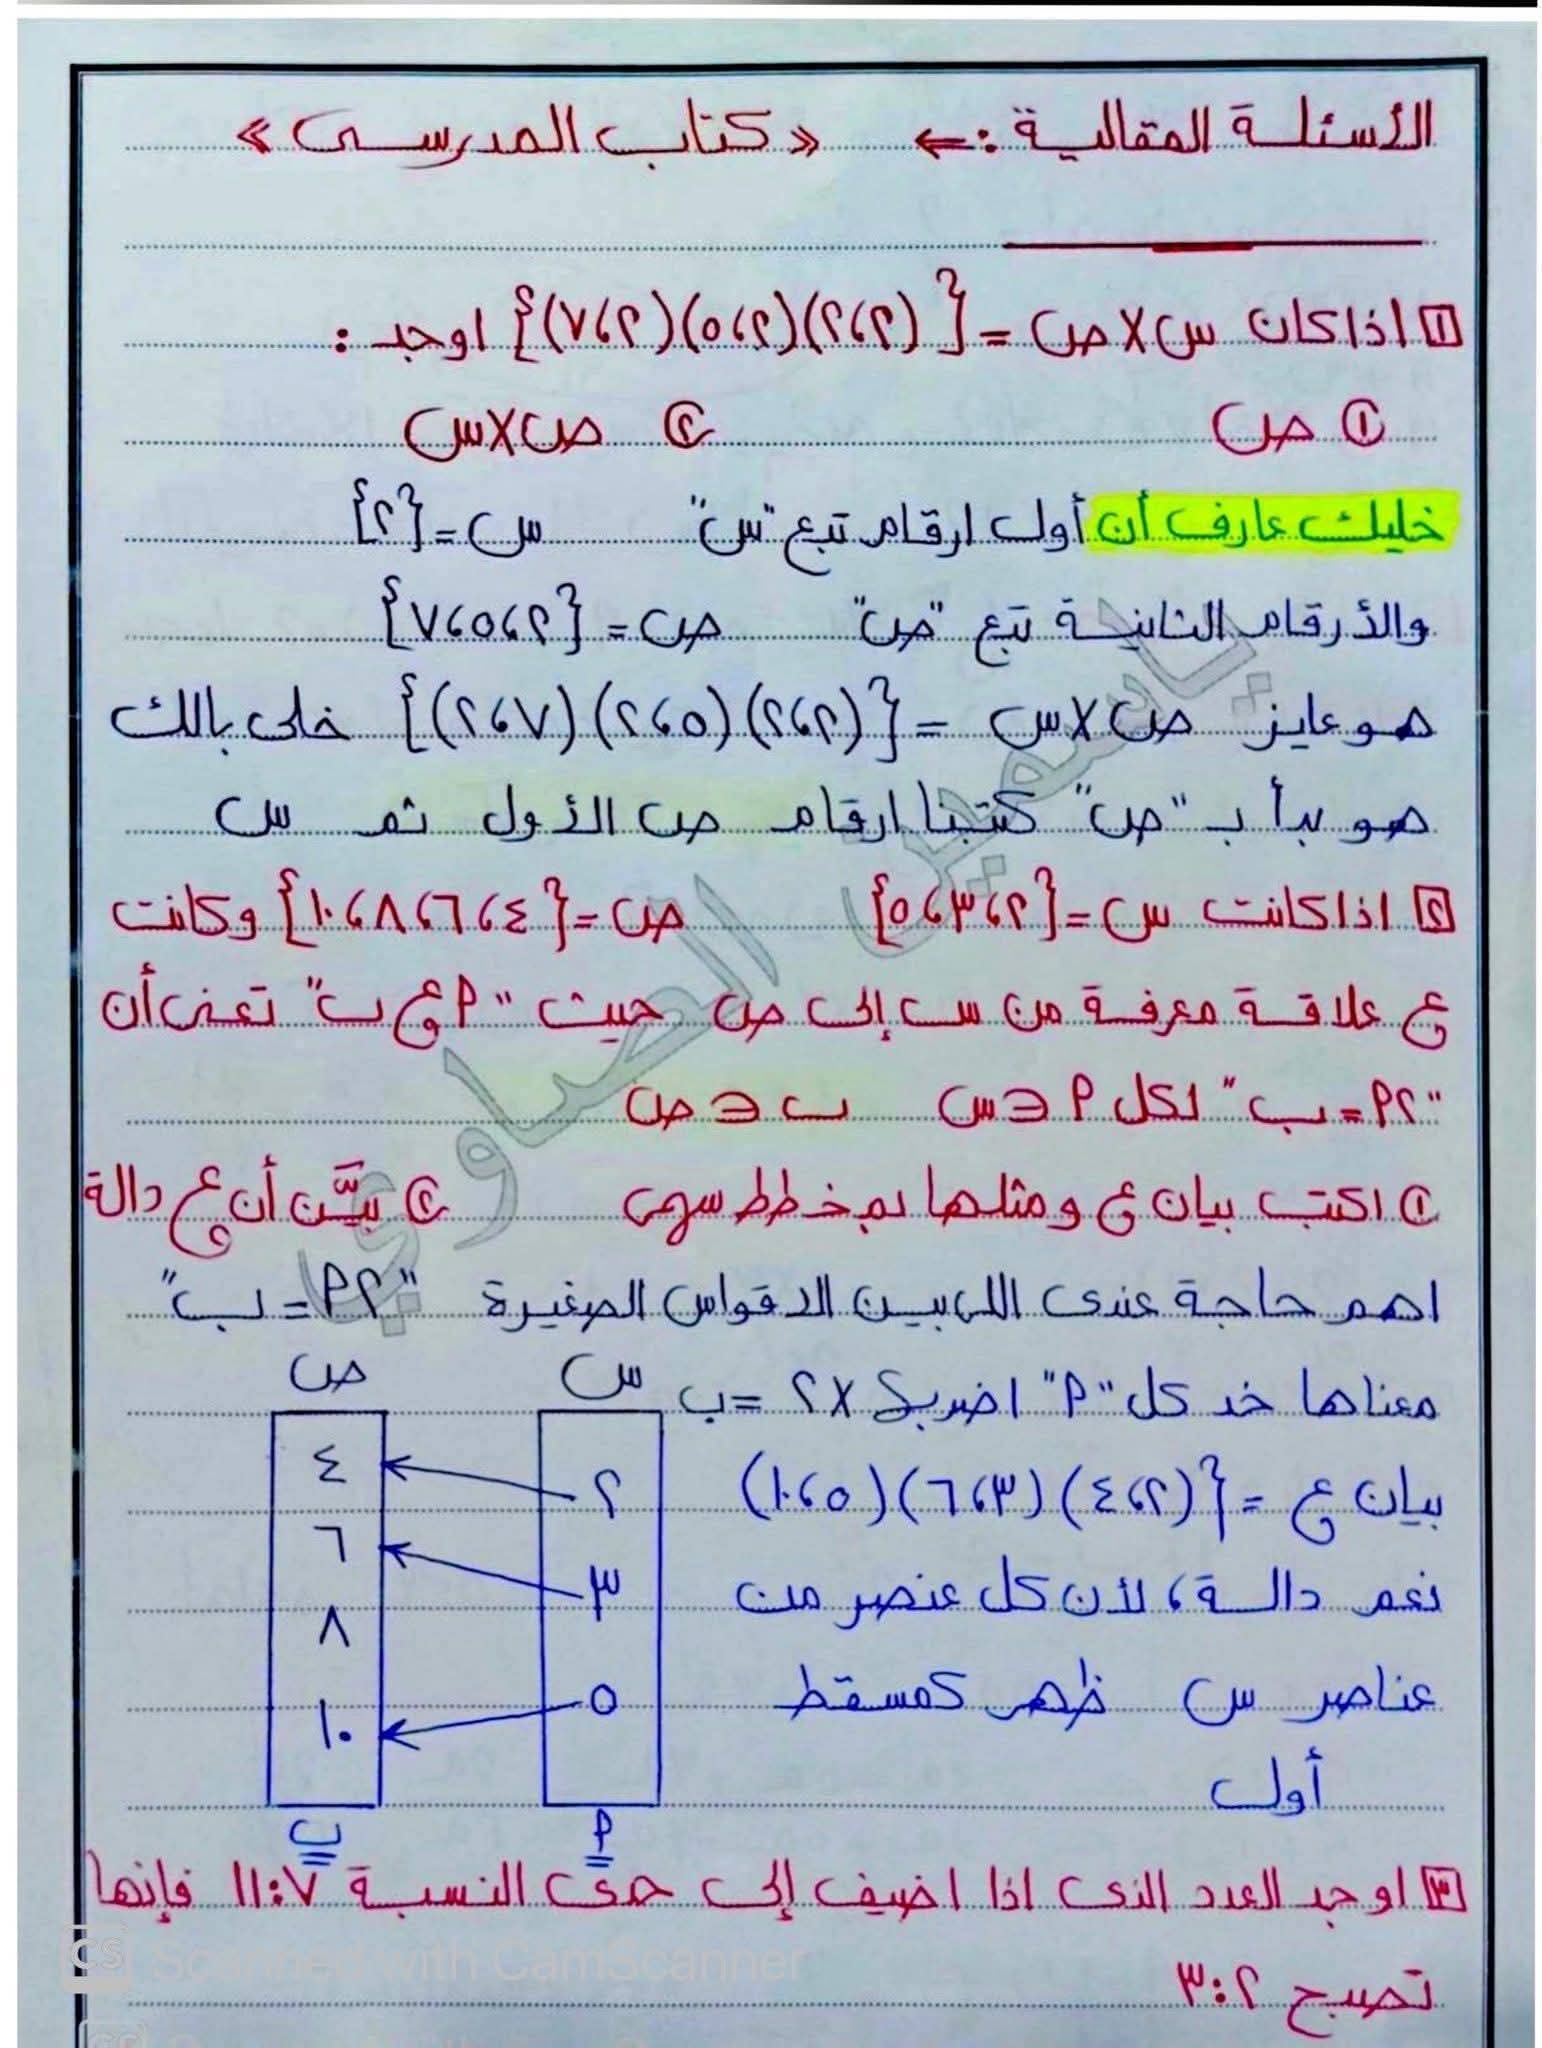 الأسئلة المقالية :← « كتاب المدرسى »
١ اذا كان س X ص = {(٢،٢)(٢،٥)(٢،٧)} اوجد :
① ص ② ص X س
خليك عارف أن أول ارقام تبع "س" س = {٢}
والأرقام الثانية تبع "ص" ص = {٢،٥،٧}
هو عايز ص X س = {(٢،٢)(٥،٢)(٧،٢)} خلى بالك
هو بدأ ب "ص" كتبنا ارقام ص الأول ثم س
٢ اذا كانت س = {٢،٣،٥} ص = {٤،٦،٨،١٠} وكانت
ع علاقة معرفة من س إلى ص حيث "أ ع ب" تعنى أن
"٢أ = ب" لكل أ ∈ س ب ∈ ص
① اكتب بيان ع ومثلها بمخطط سهمى ② بيّن أن ع دالة
اهم حاجة عندى اللى بين الاقواس الصغيرة "٢أ = ب"
معناها خد كل "أ" اضربة X ٢ = ب
بيان ع = {(٢،٤)(٣،٦)(٥،١٠)
نعم دالة، لأن كل عنصر من
عناصر س ظهر كمسقط
أول
س ص
٢ ٤
٣ ٦
٨
٥ ١٠
أ ب
٣ اوجد العدد الذى اذا اضيف إلى حدى النسبة ٧:١١ فإنها
تصبح ٢:٣
ياسمين الصاوي
CS Scanned with CamScanner